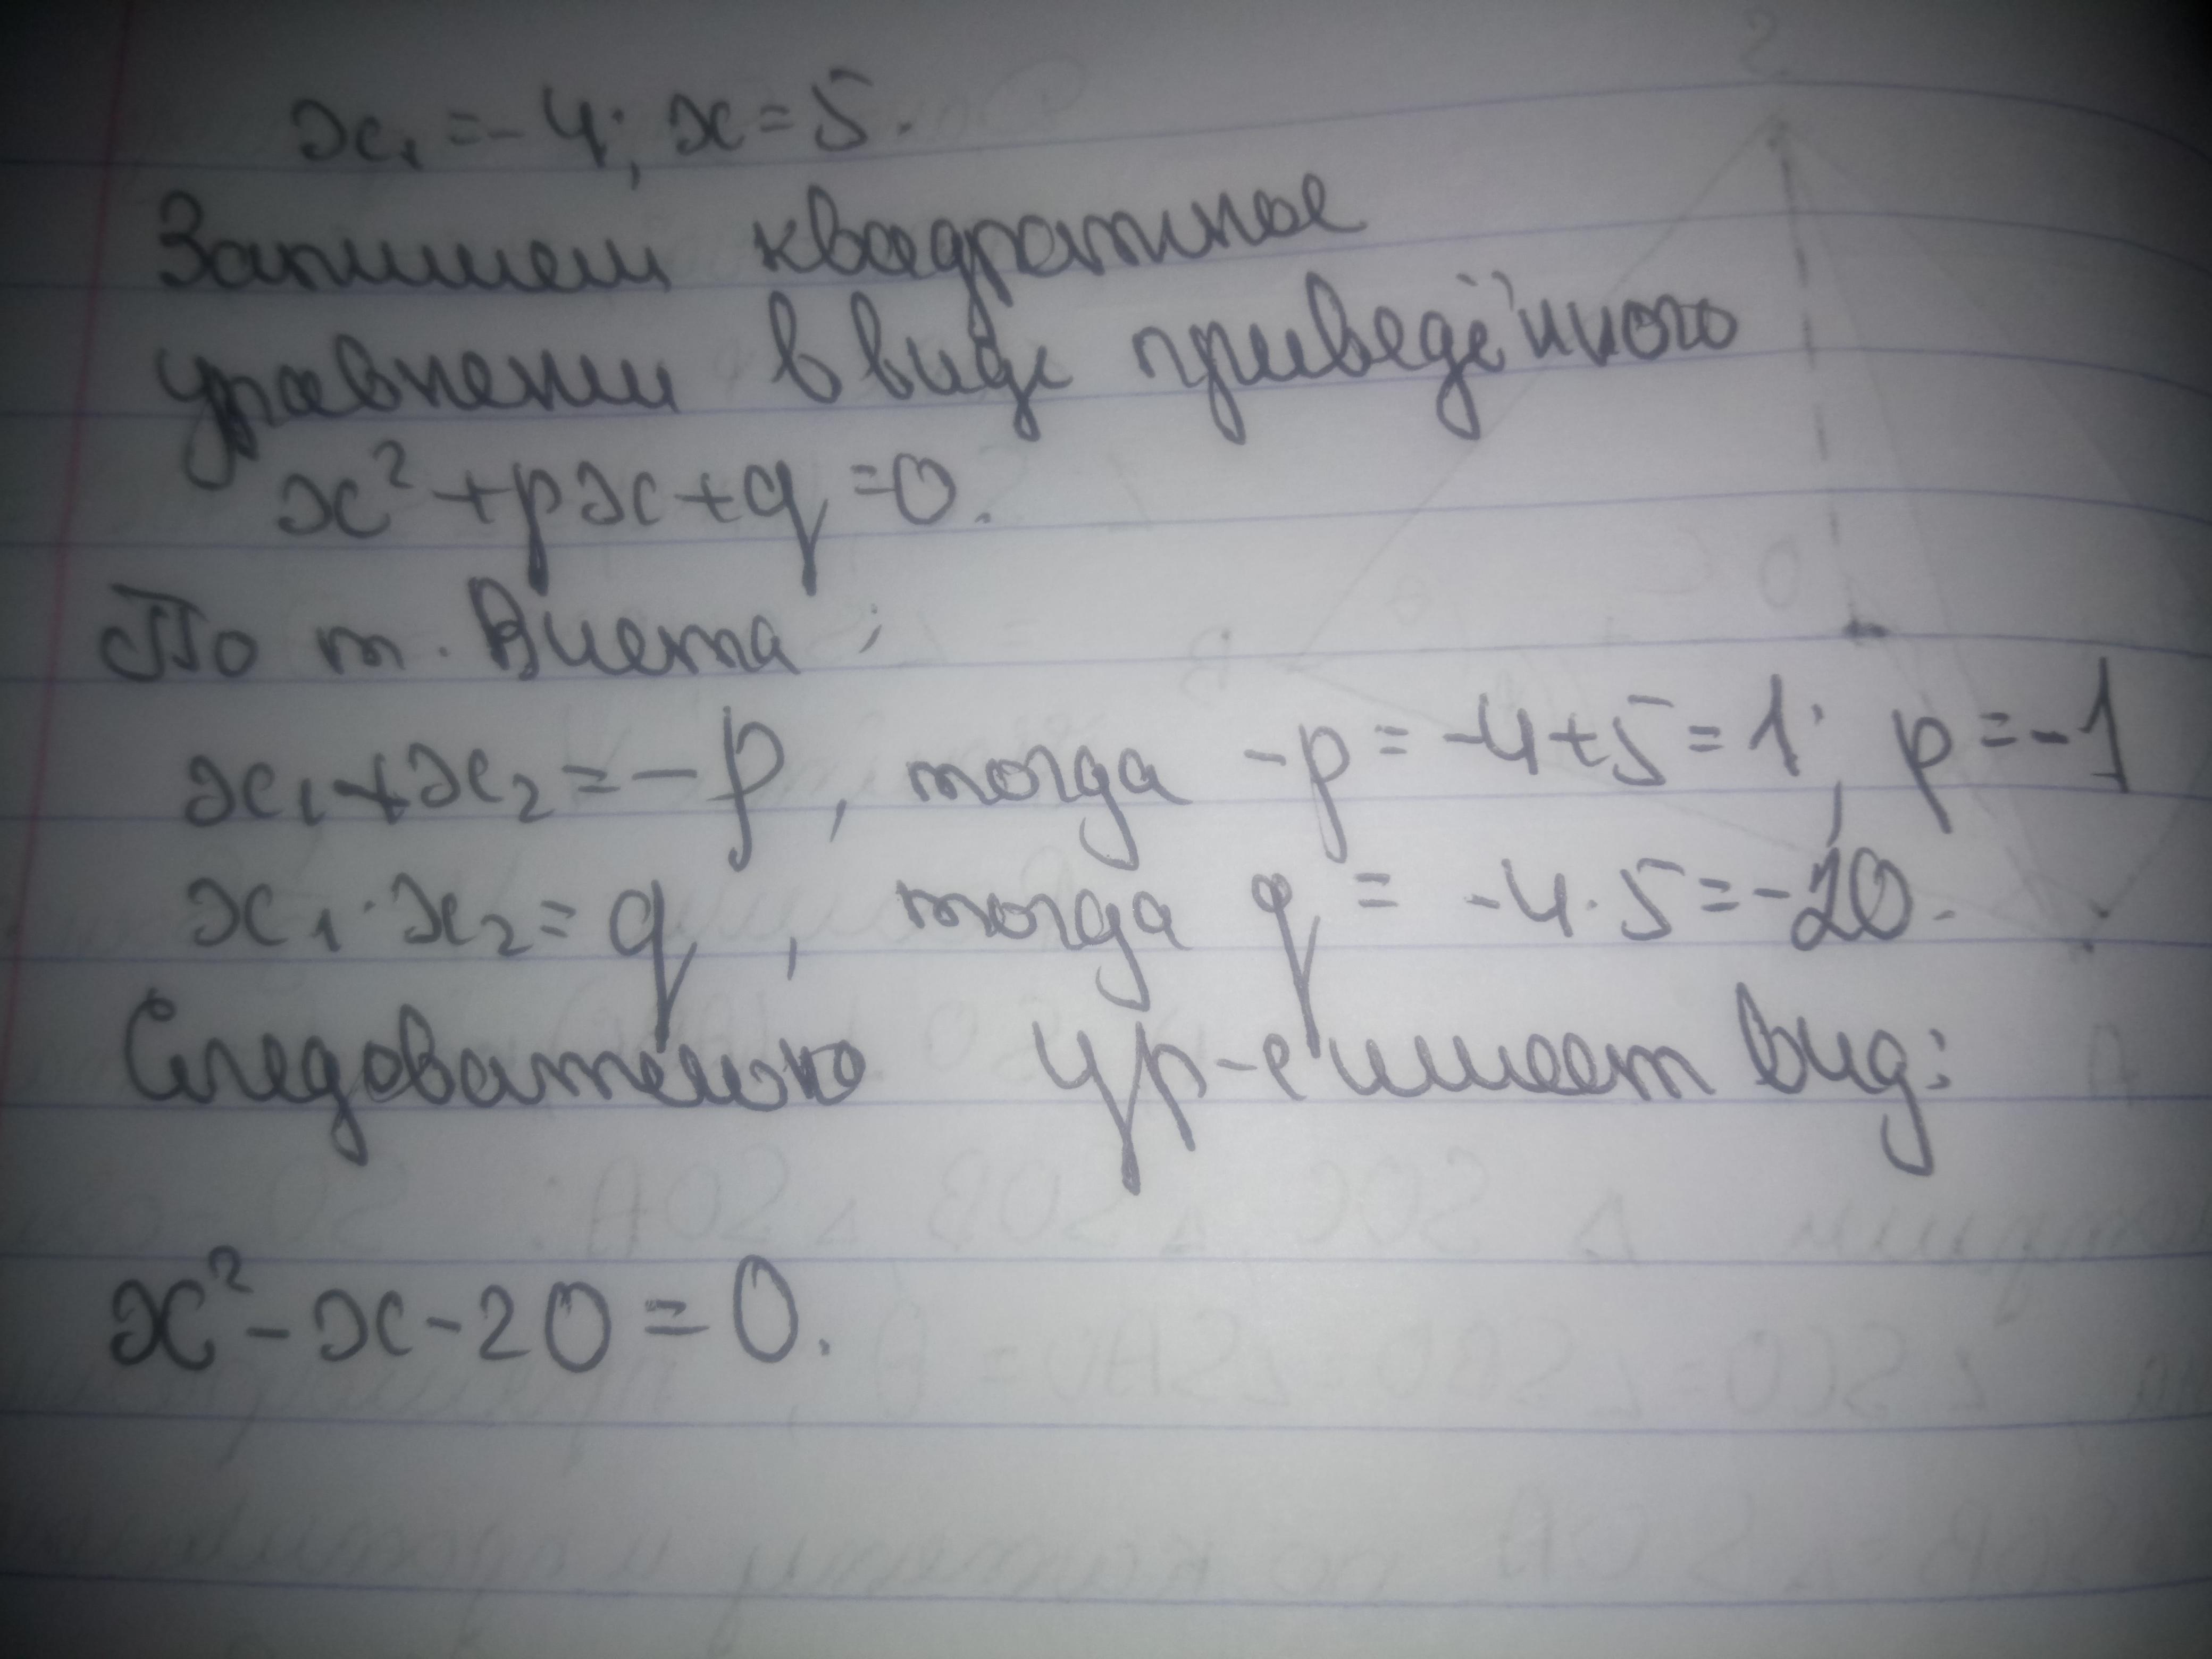 x₁ = -4; x = 5.
Запишем квадратное
уравнени в виде приведённого
x² + px + q = 0.
По т. Виета:
x₁ + x₂ = -p, тогда -p = -4+5 = 1; p = -1
x₁ · x₂ = q, тогда q = -4·5 = -20.
Следовательно ур-е имеет вид:
x² - x - 20 = 0.